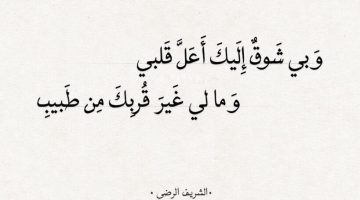 وَبي شَوقٌ إِلَيكَ أَعَلَّ قَلبي
وَما لي غَيرَ قُربِكَ مِن طَبيبِ
• الشريف الرضي •